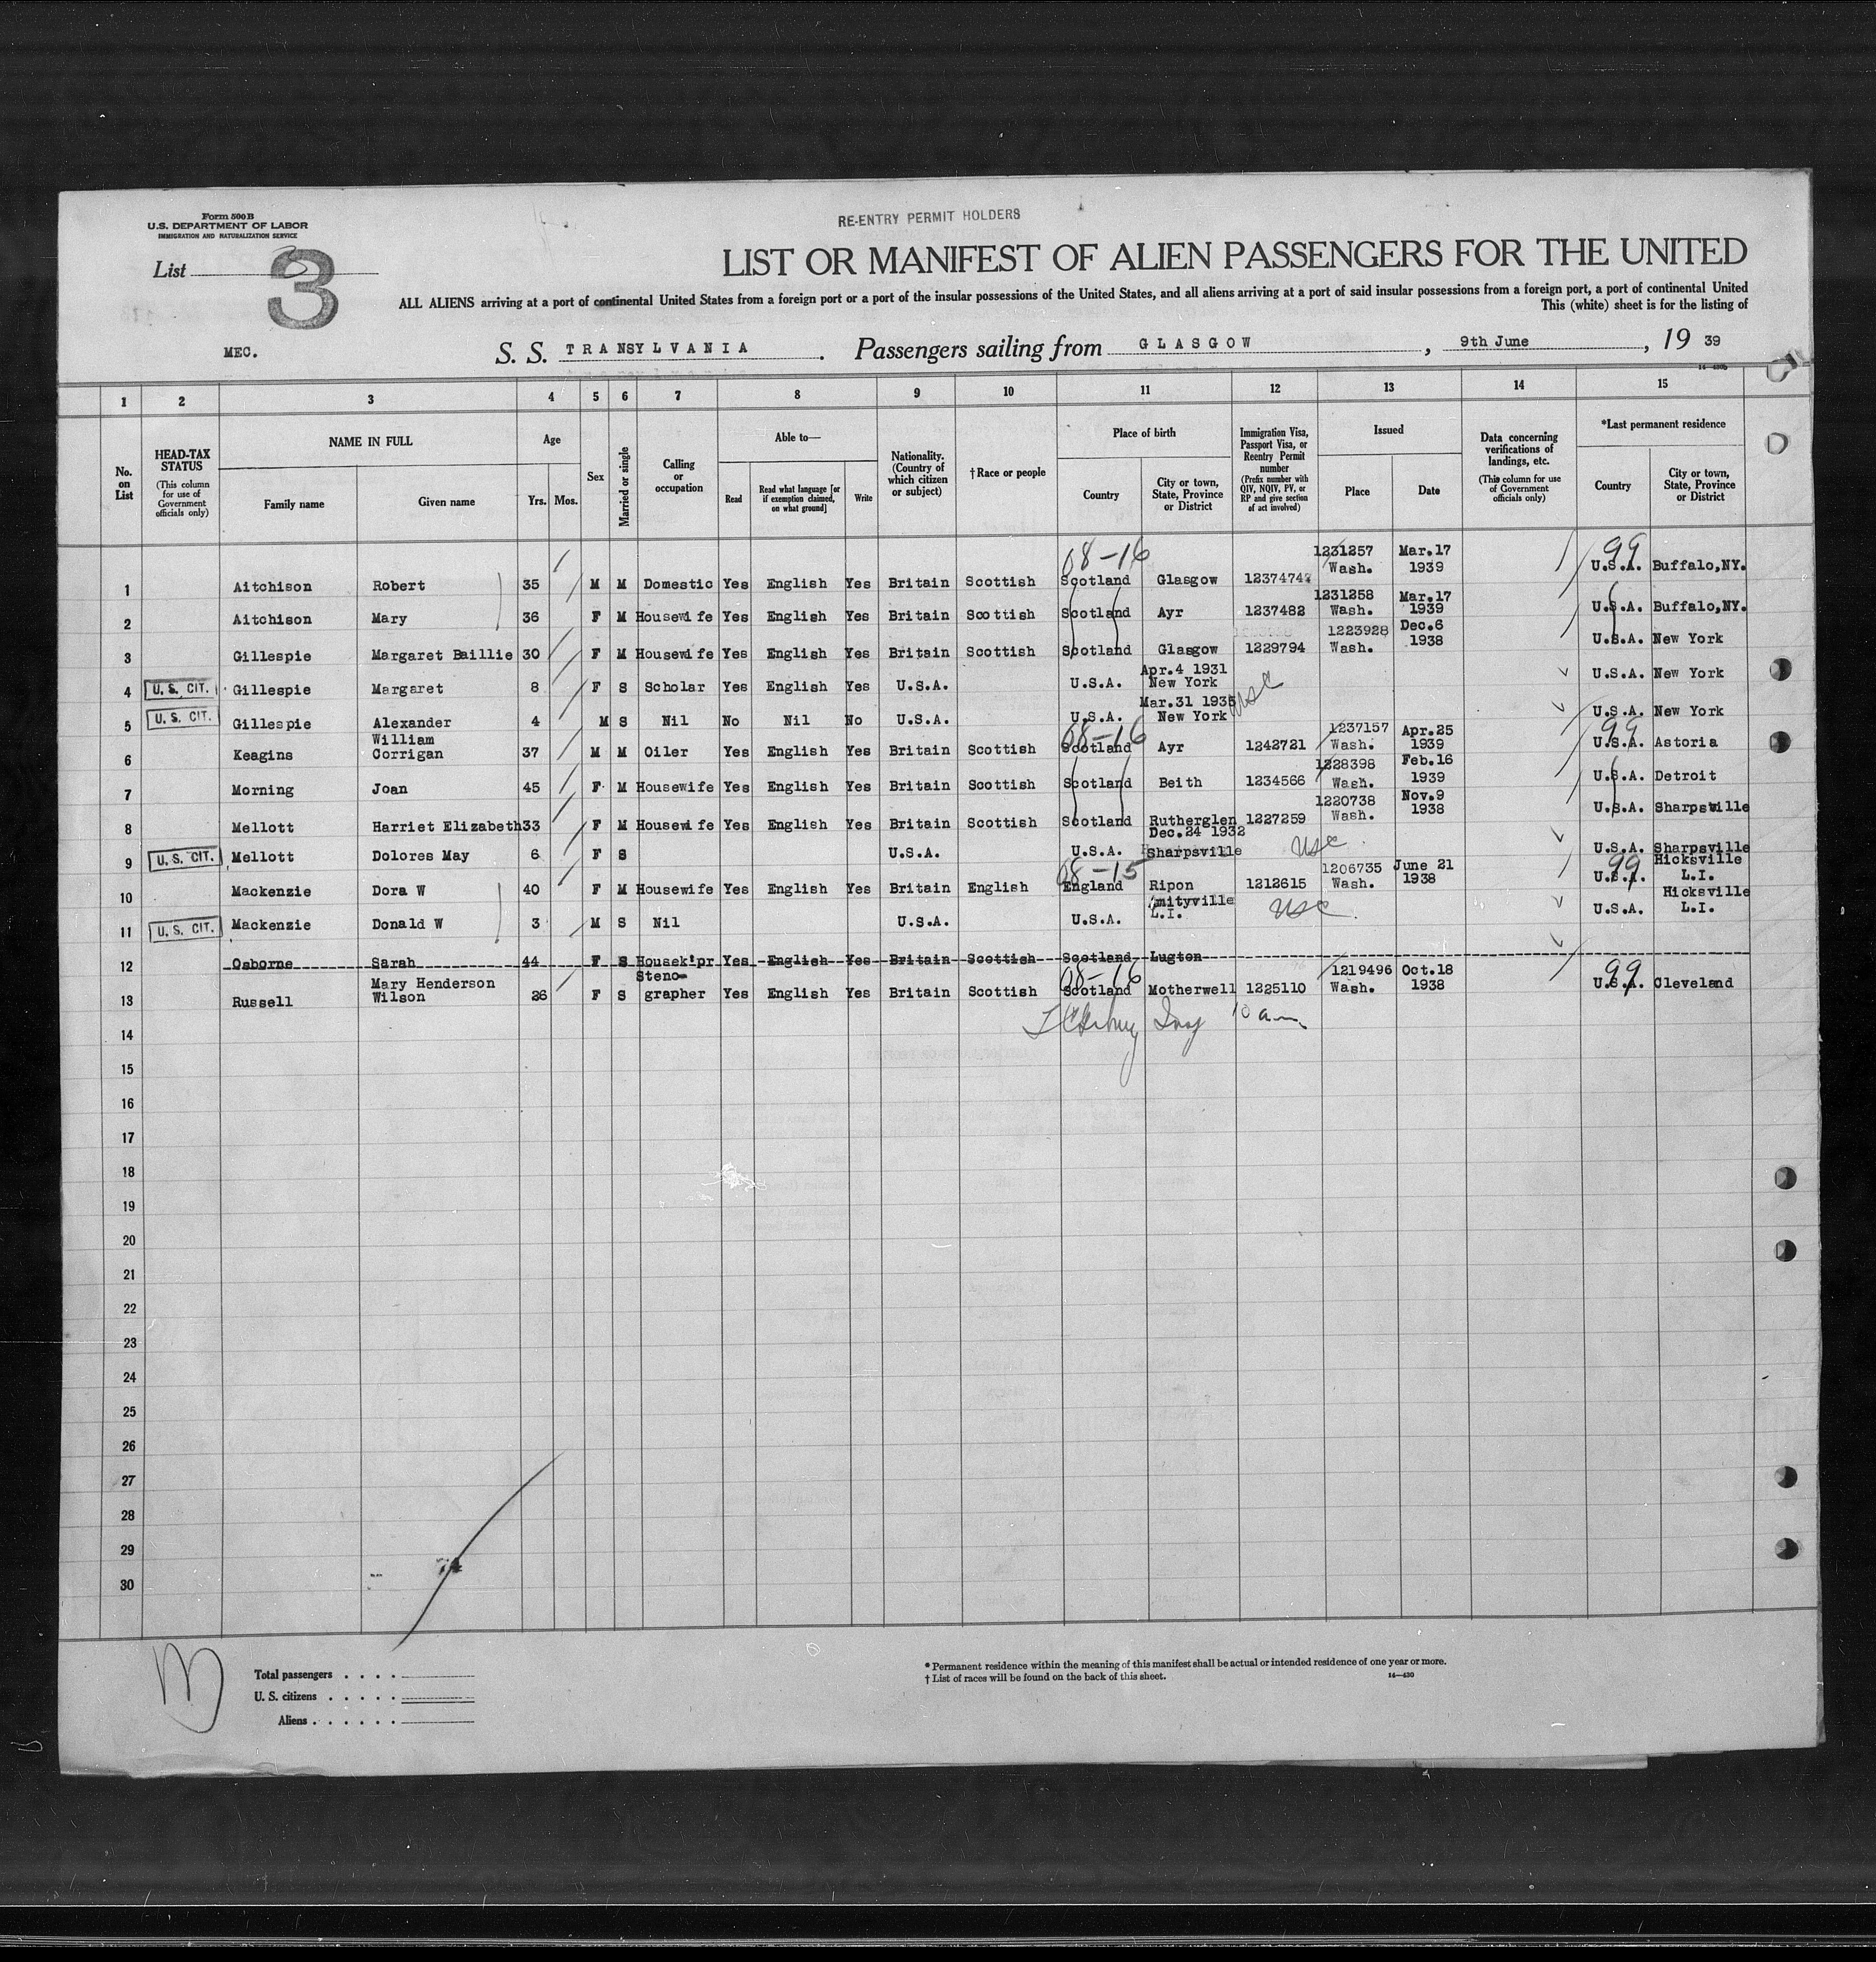 Form 500 B
U.S. DEPARTMENT OF LABOR
IMMIGRATION AND NATURALIZATION SERVICE
RE-ENTRY PERMIT HOLDERS
List 3
LIST OR MANIFEST OF ALIEN PASSENGERS FOR THE UNITED
ALL ALIENS arriving at a port of continental United States from a foreign port or a port of the insular possessions of the United States, and all aliens arriving at a port of said insular possessions from a foreign port, a port of continental United
This (white) sheet is for the listing of
MEC. S. S. TRANSYLVANIA. Passengers sailing from GLASGOW, 9th June, 19 39
14-430b
1 2 3 4 5 6 7 8 9 10 11 12 13 14 15
No. on List
HEAD-TAX STATUS (This column for use of Government officials only)
NAME IN FULL Family name Given name
Age Yrs. Mos.
Sex
Married or single
Calling or occupation
Able to— Read Read what language [or if exemption claimed, on what ground] Write
Nationality. (Country of which citizen or subject)
†Race or people
Place of birth Country City or town, State, Province or District
Immigration Visa, Passport Visa, or Reentry Permit number (Prefix number with QIV, NQIV, PV, or RP and give section of act involved)
Issued Place Date
Data concerning verifications of landings, etc. (This column for use of Government officials only)
*Last permanent residence Country City or town, State, Province or District
08-16 1231257 Mar.17 99
1 Aitchison Robert 35 M M Domestic Yes English Yes Britain Scottish Scotland Glasgow 1237474 Wash. 1939 U.S.A. Buffalo,NY.
1231258 Mar.17
2 Aitchison Mary 36 F M Housewife Yes English Yes Britain Scottish Scotland Ayr 1237482 Wash. 1939 U.S.A. Buffalo,NY.
1223928 Dec.6
3 Gillespie Margaret Baillie 30 F M Housewife Yes English Yes Britain Scottish Scotland Glasgow 1229794 Wash. 1938 U.S.A. New York
Apr.4 1931
4 U.S. CIT. Gillespie Margaret 8 F S Scholar Yes English Yes U.S.A. U.S.A. New York U.S.A. New York
Mar.31 1935 USC
5 U.S. CIT. Gillespie Alexander 4 M S Nil No Nil No U.S.A. U.S.A. New York U.S.A. New York
William 08-16 1237157 Apr.25 99
6 Keagins Corrigan 37 M M Oiler Yes English Yes Britain Scottish Scotland Ayr 1242721 Wash. 1939 U.S.A. Astoria
1228398 Feb.16
7 Morning Joan 45 F M Housewife Yes English Yes Britain Scottish Scotland Beith 1234566 Wash. 1939 U.S.A. Detroit
1220738 Nov.9
8 Mellott Harriet Elizabeth 33 F M Housewife Yes English Yes Britain Scottish Scotland Rutherglen 1227259 Wash. 1938 U.S.A. Sharpsville
Dec.24 1932
9 U.S. CIT. Mellott Dolores May 6 F S U.S.A. U.S.A. Sharpsville USC U.S.A. Sharpsville
08-15 1206735 June 21 99 Hicksville
10 Mackenzie Dora W 40 F M Housewife Yes English Yes Britain English England Ripon 1212615 Wash. 1938 U.S.A. L.I.
Amityville Hicksville
11 U.S. CIT. Mackenzie Donald W 3 M S Nil U.S.A. U.S.A. L.I. USC U.S.A. L.I.
12 Osborne Sarah 44 F S Housek'pr Yes English Yes Britain Scottish Scotland Lugton
Mary Henderson Steno- 08-16 1219496 Oct.18 99
13 Russell Wilson 26 F S grapher Yes English Yes Britain Scottish Scotland Motherwell 1225110 Wash. 1938 U.S.A. Cleveland
14 10 am
15
16
17
18
19
20
21
22
23
24
25
26
27
28
29
30
74
Total passengers
U. S. citizens
Aliens
* Permanent residence within the meaning of this manifest shall be actual or intended residence of one year or more.
† List of races will be found on the back of this sheet.
14-430